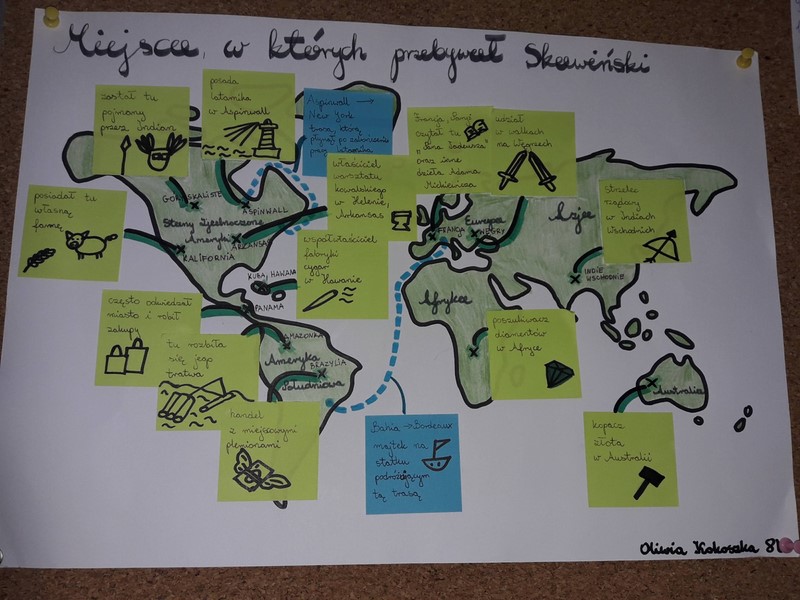 Miejsca, w których przebywał Skawiński
został tu
pojmany
przez Indian
posada
latarnika
w Aspinwall
Aspinwall →
New York
trasa, którą
płynął po zakończeniu
pracy latarnika
Francja, Paryż
czytał tu
"Pana Tadeusza"
oraz inne
dzieła Adama
Mickiewicza
udział
w walkach
na Węgrzech
właściciel
warsztatu
kowalskiego
w Helenie,
Arkansas
strzelec
rządowy
w Indiach
Wschodnich
posiadał tu
własną
farmę
współwłaściciel
fabryki
cygar
w Hawanie
często odwiedzał
miasta i robił
zakupy
tu rozbiła
się jego
tratwa
handel
z miejscowymi
plemionami
Bahia → Bordeaux
majtek na
statku
podróżującym
tą trasą
poszukiwacz
diamentów
w Afryce
kopacz
złota
w Australii
GÓRY SKALISTE
ASPINWALL
Stany Zjednoczone
Ameryki
ARKANSAS
KALIFORNIA
KUBA, HAWANA
PANAMA
AMAZONKA
Ameryka
BRAZYLIA
Południowa
FRANCJA
Europa
WĘGRY
Azja
INDIE
WSCHODNIE
Afryka
Australia
Oliwia Kokoszka